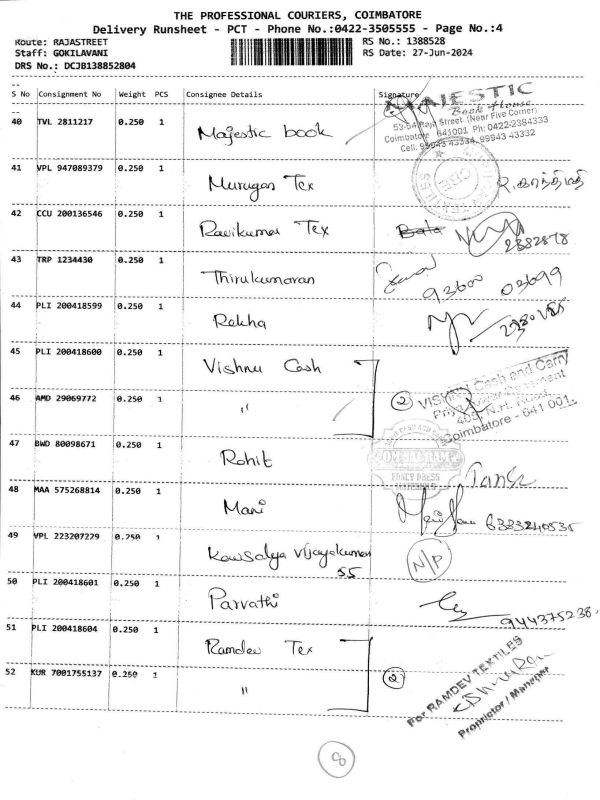 THE PROFESSIONAL COURIERS, COIMBATORE
Delivery Runsheet - PCT - Phone No.:0422-3505555 - Page No.:4
Route: RAJASTREET
RS No.: 1388528
Staff: GOKILAVANI
RS Date: 27-Jun-2024
DRS No.: DCJB138852804
S No Consignment No Weight PCS Consignee Details Signature
MAJESTIC
Book House
53-54 Raja Street (Near Five Corner)
Coimbatore 641001 Ph: 0422-2384333
Cell: 99943 43334, 99943 43332
40 TVL 2811217 0.250 1 Majestic book
41 VPL 947089379 0.250 1 Murugan Tex
42 CCU 200136546 0.250 1 Ravikumar Tex Bala 2382878
43 TRP 1234430 0.250 1 Thirukumaran 93600 03699
44 PLI 200418599 0.250 1 Rekha
45 PLI 200418600 0.250 1 Vishnu Cash
VISHNU Cash and Carry
46 AMD 29069772 0.250 1 " 2
N.H. Road,
Coimbatore - 641 001.
47 BWD 80098671 0.250 1 Rohit
FANCY DRESS
48 MAA 575268814 0.250 1 Mani 6383240535
49 VPL 223207229 0.250 1 Kowsalya Vijayakumar N/P
SS
50 PLI 200418601 0.250 1 Parvathi 944375238
51 PLI 200418604 0.250 1 Ramdev Tex
For RAMDEV TEXTILES
52 KUR 7001755137 0.250 1 " 2
Proprietor / Manager
8